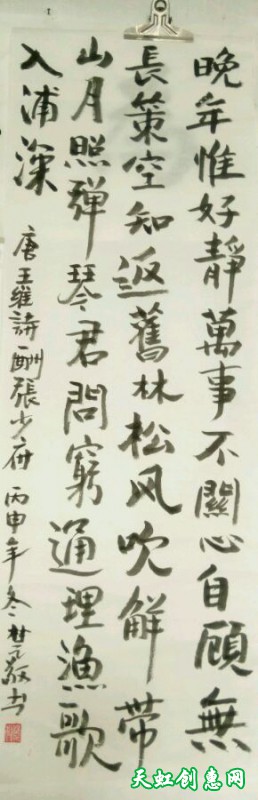 晚年惟好靜萬事不關心自顧無
長策空知返舊林松风吹解带
山月照彈琴君問窮通理漁歌
入浦深
唐王維詩酬張少府丙申年冬林元敬书
天虹创惠网